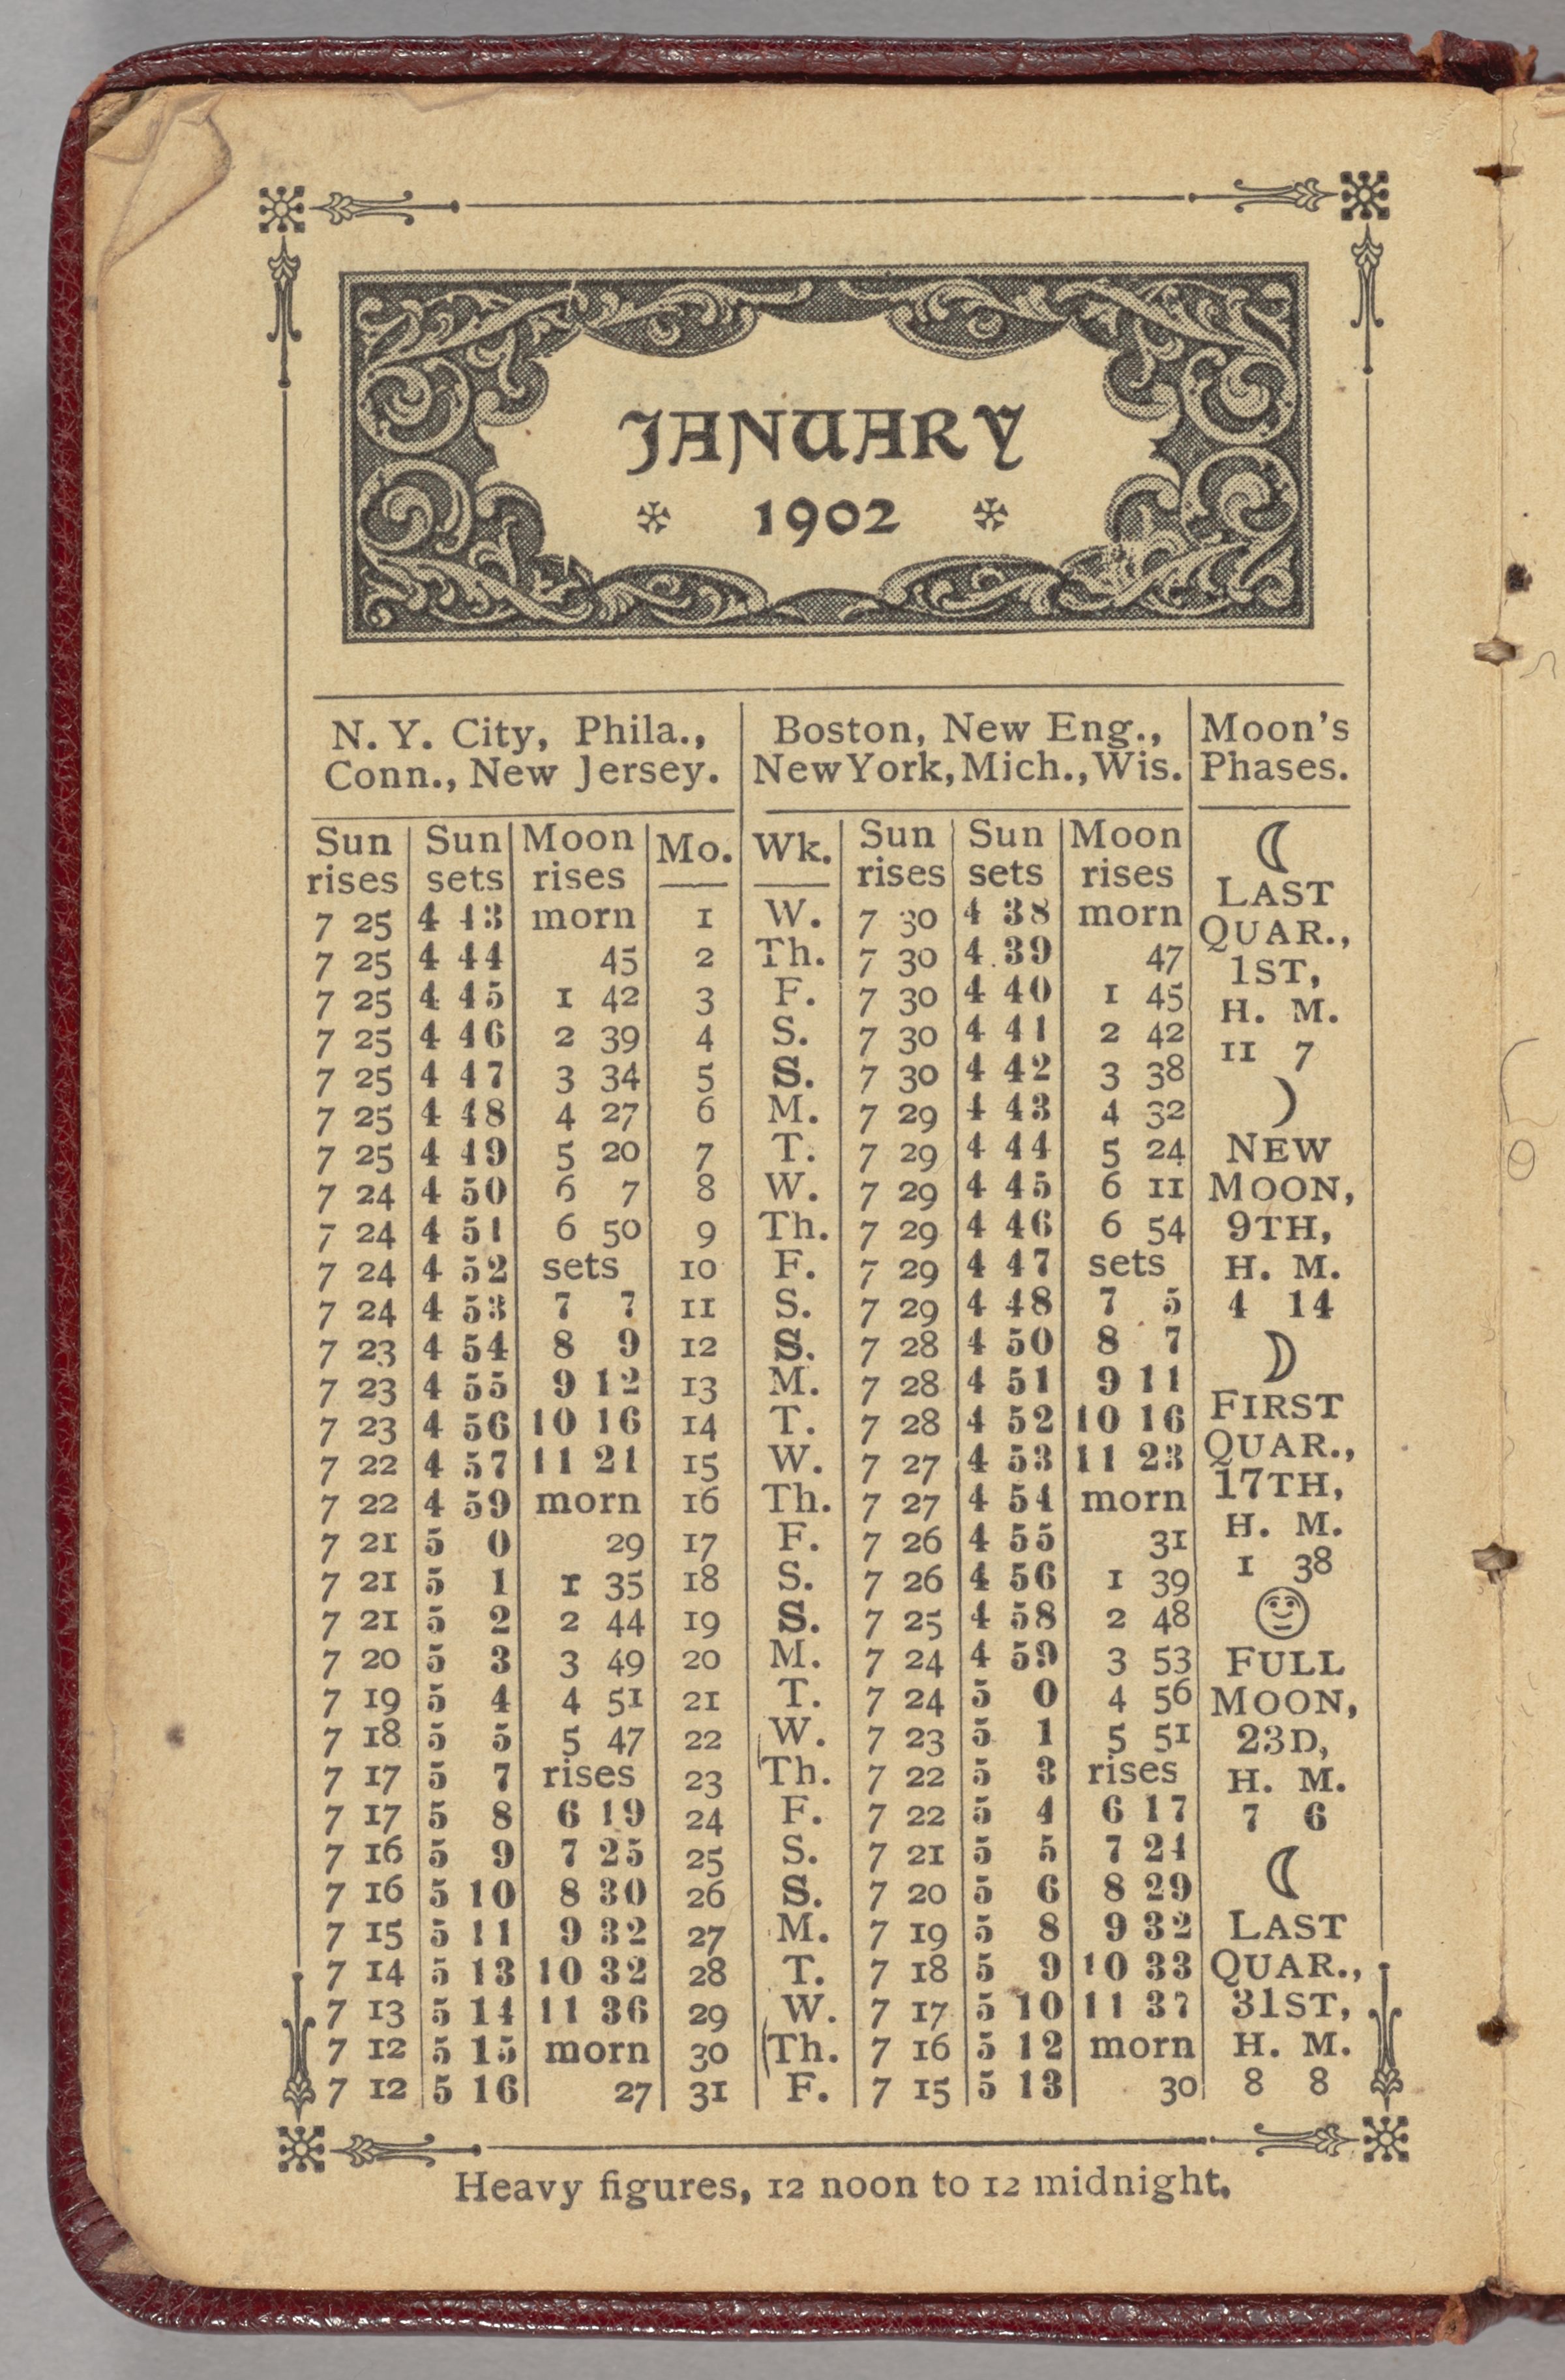 JANUARY
1902
N. Y. City, Phila., Boston, New Eng., Moon's
Conn., New Jersey. New York, Mich., Wis. Phases.
Sun Sun Moon Mo. Wk. Sun Sun Moon
rises sets rises rises sets rises LAST
7 25 4 43 morn 1 W. 7 30 4 38 morn QUAR.,
7 25 4 44 45 2 Th. 7 30 4 39 47 1ST,
7 25 4 45 1 42 3 F. 7 30 4 40 1 45 H. M.
7 25 4 46 2 39 4 S. 7 30 4 41 2 42 11 7
7 25 4 47 3 34 5 S. 7 30 4 42 3 38
7 25 4 48 4 27 6 M. 7 29 4 43 4 32
7 25 4 49 5 20 7 T. 7 29 4 44 5 24 NEW
7 24 4 50 6 7 8 W. 7 29 4 45 6 11 MOON,
7 24 4 51 6 50 9 Th. 7 29 4 46 6 54 9TH,
7 24 4 52 sets 10 F. 7 29 4 47 sets H. M.
7 24 4 53 7 7 11 S. 7 29 4 48 7 5 4 14
7 23 4 54 8 9 12 S. 7 28 4 50 8 7
7 23 4 55 9 12 13 M. 7 28 4 51 9 11
7 23 4 56 10 16 14 T. 7 28 4 52 10 16 FIRST
7 22 4 57 11 21 15 W. 7 27 4 53 11 23 QUAR.,
7 22 4 59 morn 16 Th. 7 27 4 54 morn 17TH,
7 21 5 0 29 17 F. 7 26 4 55 31 H. M.
7 21 5 1 1 35 18 S. 7 26 4 56 1 39 1 38
7 21 5 2 2 44 19 S. 7 25 4 58 2 48
7 20 5 3 3 49 20 M. 7 24 4 59 3 53 FULL
7 19 5 4 4 51 21 T. 7 24 5 0 4 56 MOON,
7 18 5 5 5 47 22 W. 7 23 5 1 5 51 23D,
7 17 5 7 rises 23 Th. 7 22 5 3 rises H. M.
7 17 5 8 6 19 24 F. 7 22 5 4 6 17 7 6
7 16 5 9 7 25 25 S. 7 21 5 5 7 24
7 16 5 10 8 30 26 S. 7 20 5 6 8 29
7 15 5 11 9 32 27 M. 7 19 5 8 9 32 LAST
7 14 5 13 10 32 28 T. 7 18 5 9 10 33 QUAR.,
7 13 5 14 11 36 29 W. 7 17 5 10 11 37 31ST,
7 12 5 15 morn 30 Th. 7 16 5 12 morn H. M.
7 12 5 16 27 31 F. 7 15 5 13 30 8 8
Heavy figures, 12 noon to 12 midnight.